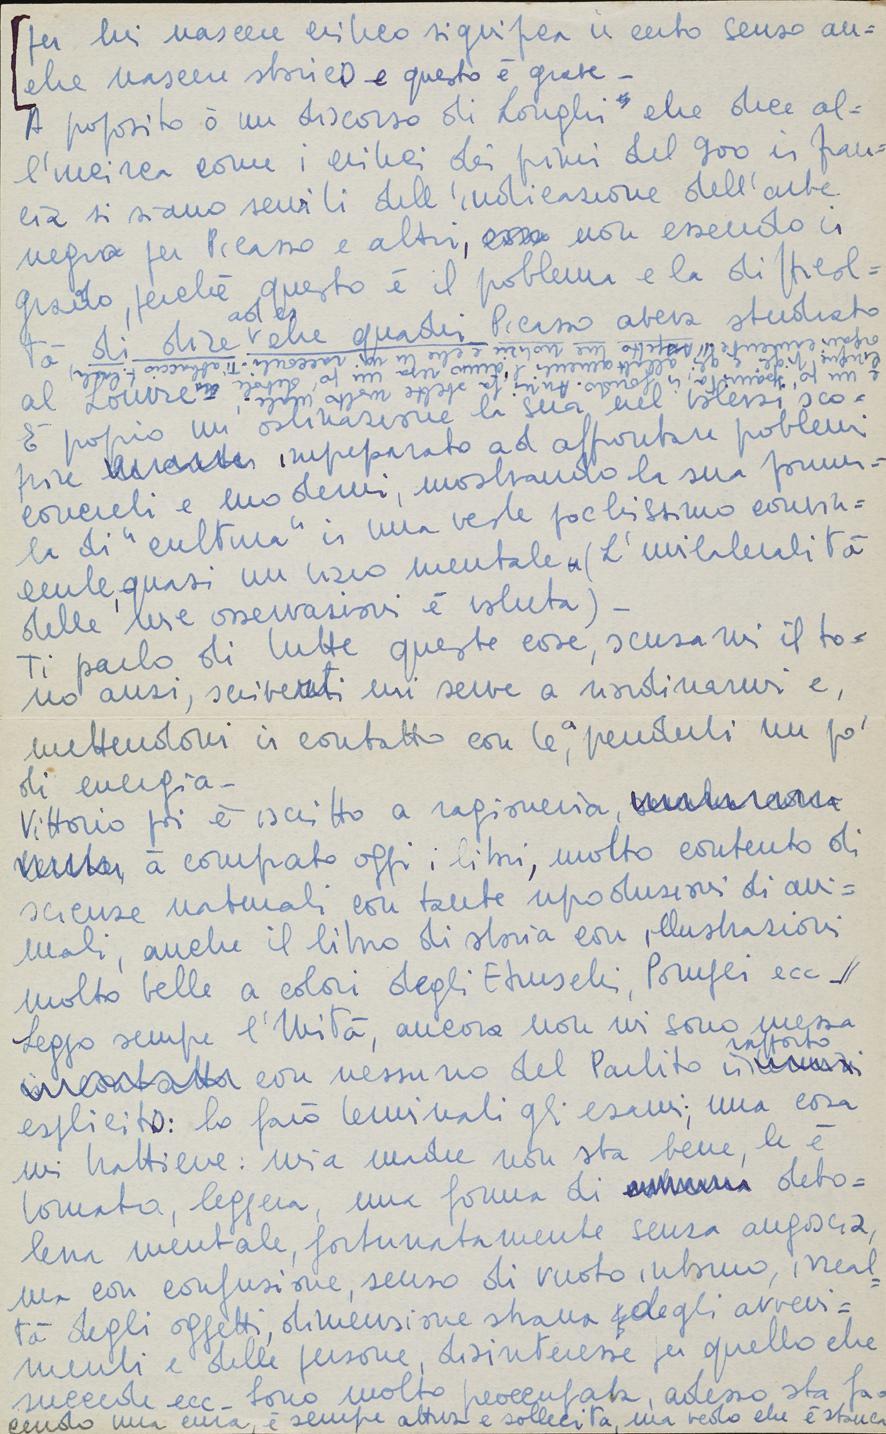 per lui nascere critico significa in certo senso an=
che nascere storico e questo è grave -
A proposito ò un discorso di Longhi che dice al=
l'incirca come i critici dei primi del 900 in Fran=
cia si siano serviti dell'indicazione dell'arte
negra per Picasso e altri, non essendo in
grado, perché questo è il problema e la diffficol=
tà di dire ad es che quadri Picasso aveva studiato
al Louvre -
È proprio un' ostinazione la sua nel volersi sco=
prire impreparato ad affrontare problemi
concreti e moderni, mostrando la sua formu=
la di "cultura" in una veste pochissimo convin=
cente, quasi un vizio mentale. (L'unilateralità
delle mie osservazioni è voluta) -
Ti parlo di tutte queste cose, scusami il to=
no anzi, scriverti mi serve a riordinarmi e,
mettendomi in contatto con te, a prenderti un po'
di energia -
Vittorio poi è iscritto a ragioneria,
à comprato oggi i libri, molto contento di
scienze naturali con tante riproduzioni di ani=
mali, anche il libro di storia con illustrazioni
molto belle a colori degli Etruschi, Pompei ecc -//
Leggo sempre l'Unità, ancora non mi sono messa
con nessuno del Partito in rapporto
esplicito: lo farò terminati gli esami; una cosa
mi trattiene: mia madre non sta bene, le è
tornata, leggera, una forma di debo=
lezza mentale, fortunatamente senza angoscia,
ma con confusione, senso di vuoto intorno, irreal=
tà degli oggetti, dimensione strana degli avveni=
menti e delle persone, disinteresse per quello che
succede ecc - Sono molto preoccupata, adesso sta fa=
cendo una cura, è sempre attiva e sollecita, ma vedo che è stanca